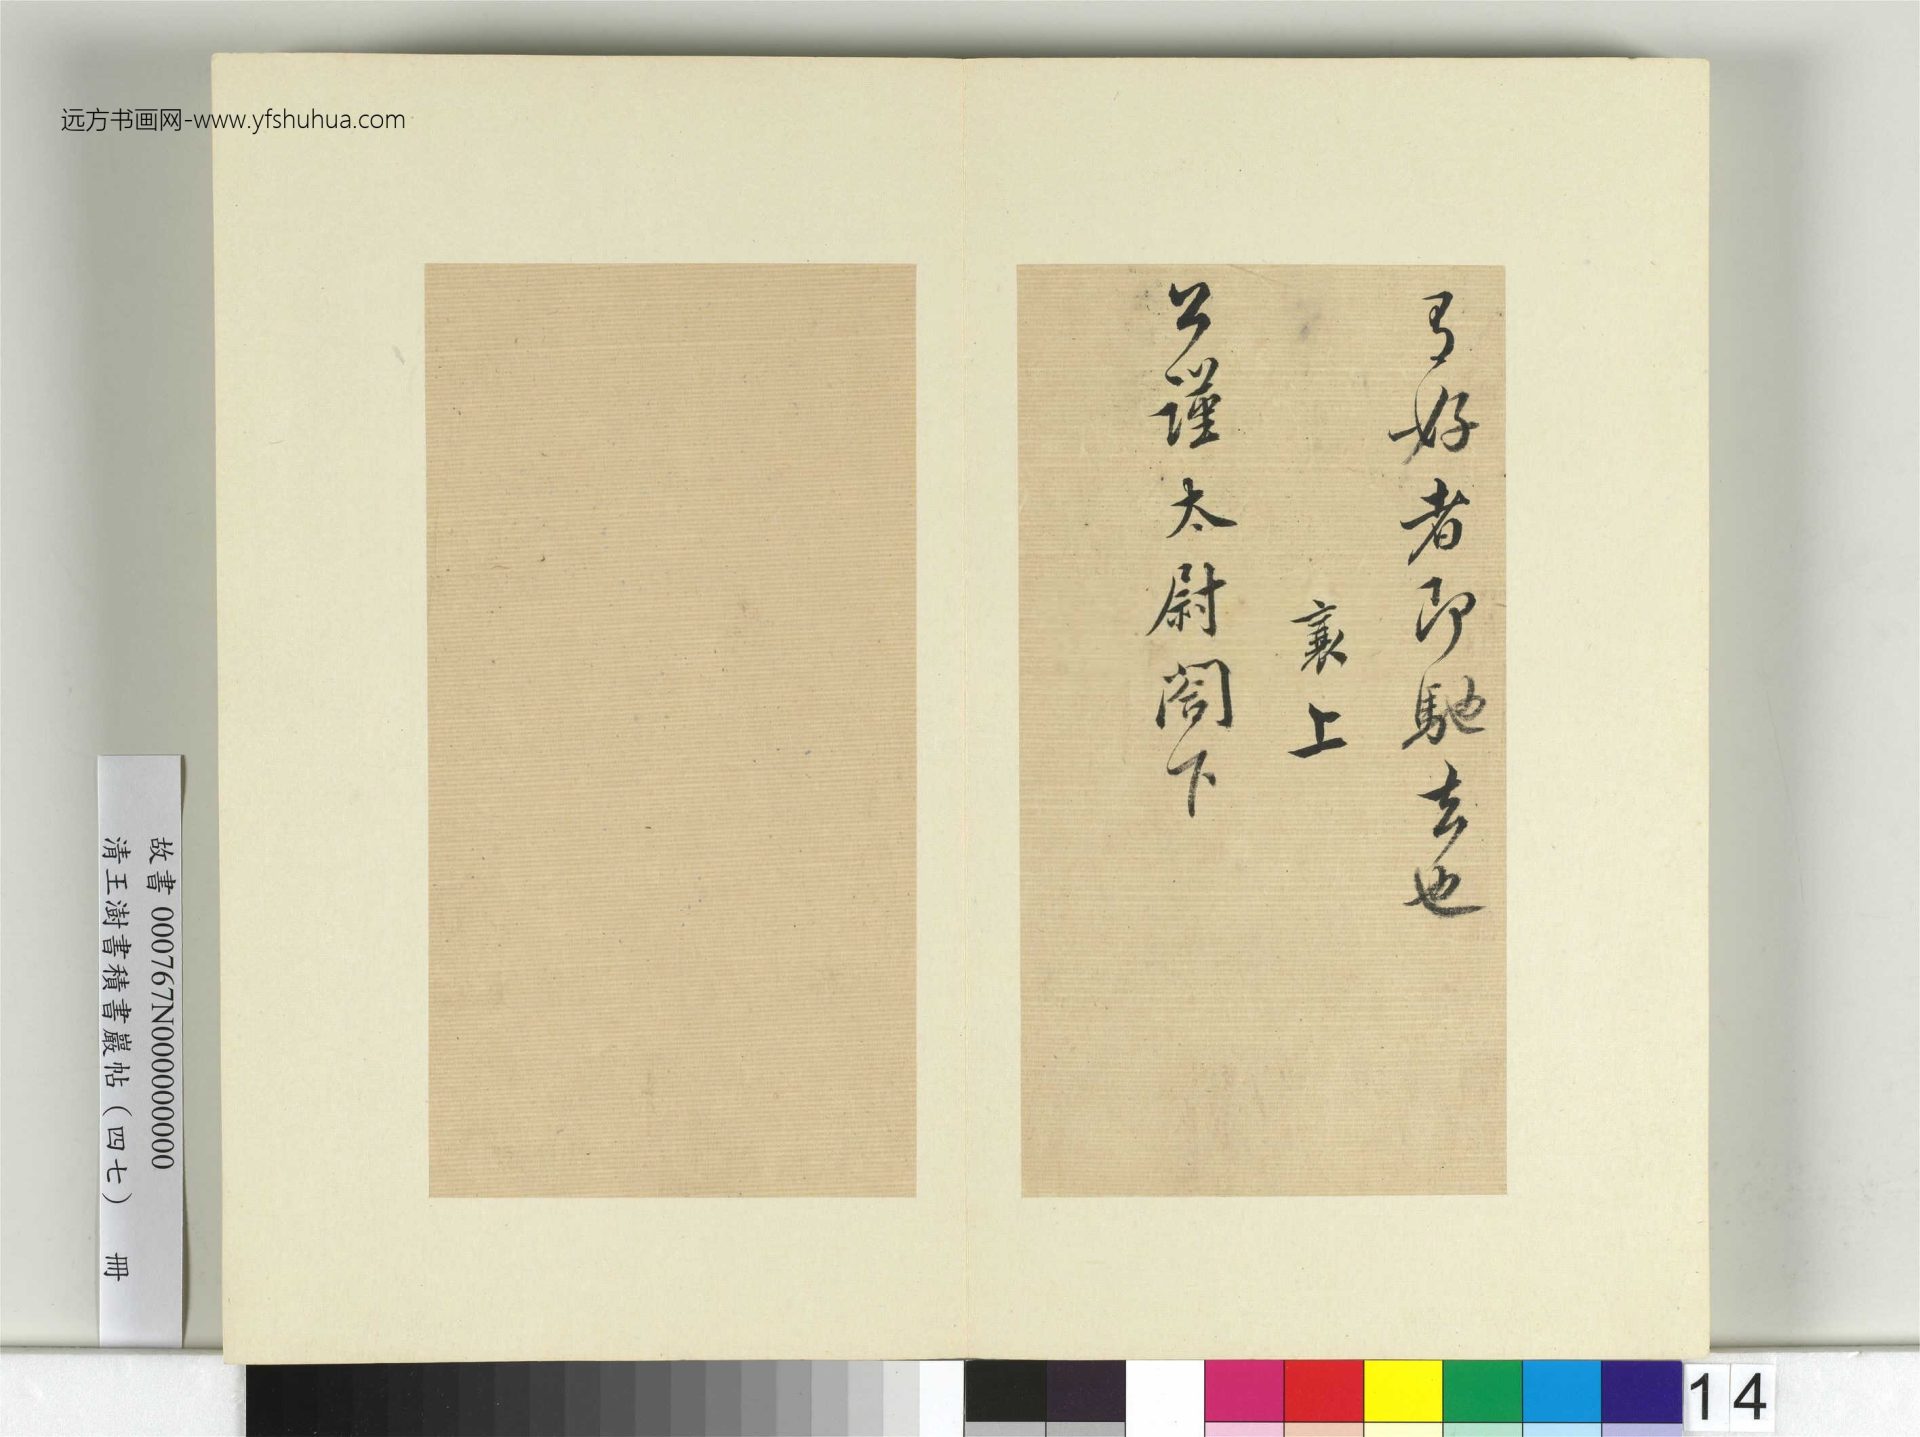 远方书画网-www.yfshuhua.com
有好者即馳去也
襄上
公謹太尉閤下
故書 000767N000000000
清王澍書積書巖帖(四七) 冊
14